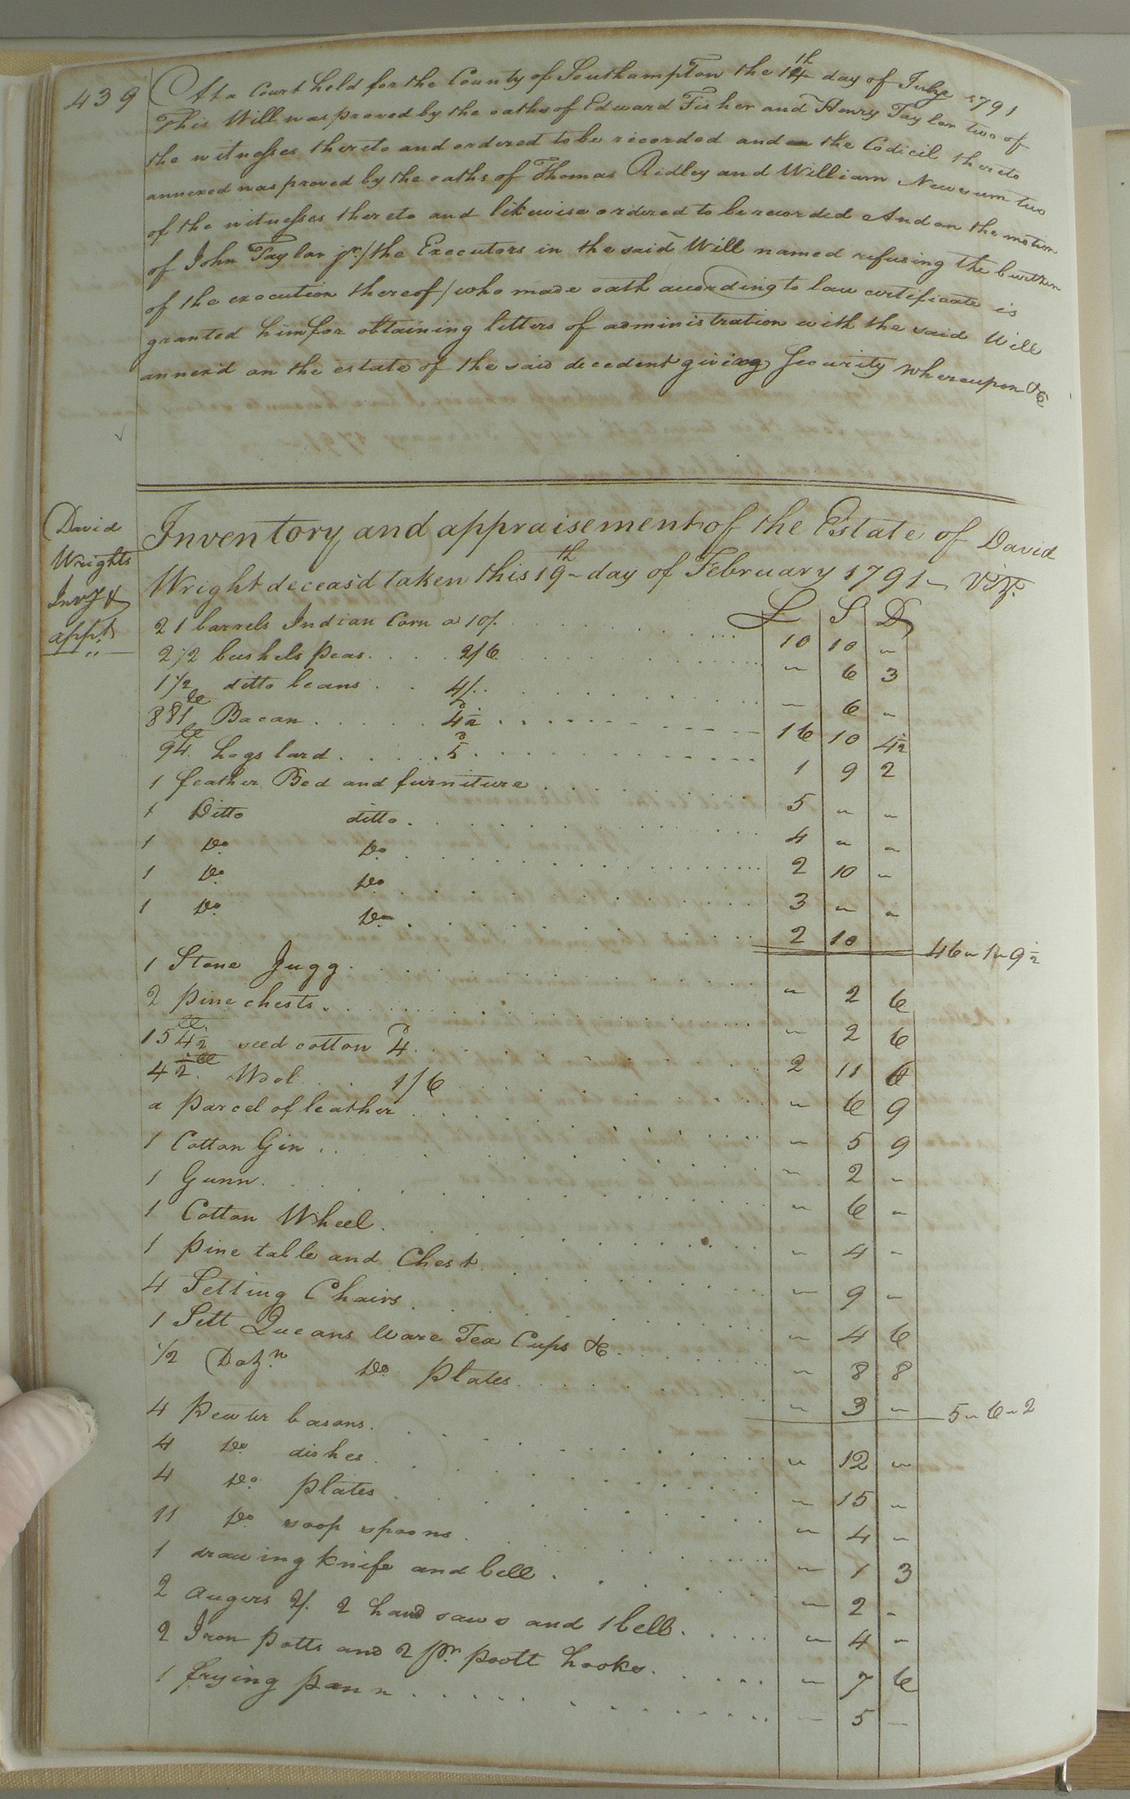 439
At a Court held for the County of Southampton the 14th day of July 1791
This Will was proved by the oaths of Edward Fisher and Henry Taylor two of
the witnesses thereto and ordered to be recorded and on the Codicil thereto
annexed was proved by the oaths of Thomas Ridley and William Newsum two
of the witnesses thereto and likewise ordered to be recorded And on the motion
of John Taylor jr. / the Executors in the said Will named refusing the burthen
of the execution thereof / who made oath according to law certificate is
granted him for obtaining letters of administration with the said Will
annex'd on the estate of the said decedent giving Security whereupon &c
David
Wrights
Invy &
appt.
Inventory and appraisement of the Estate of David
Wright deceas'd taken this 19th day of February 1791 Vizt.
£ S D
21 barrels Indian Corn a 10/. 10 10 "
2 1/2 bushels peas 2/6 " 6 3
1 1/2 ditto beans 4/. " 6 "
881 lb Bacon 4 1/2 d 16 10 4 1/2
94 lb hogs lard 5 d 1 9 2
1 feather Bed and furniture 5 " "
1 Ditto ditto 4 " "
1 Do Do 2 10 "
1 Do Do 3 " "
1 Do Do 2 10 46 " 1 " 9 1/2
1 Stone Jugg " 2 6
2 pine chests " 2 6
154 1/2 lb seed cotton 4 d 2 11 6
4 1/2 lb Wol 1/6 " 6 9
a parcel of leather " 5 9
1 Cotton Gin " 2 "
1 Gunn " 6 "
1 Cotton Wheel " 4 "
1 pine table and Chest " 9 "
4 Setting Chairs " 4 6
1 Sett Queans Ware Tea Cups &c " 8 8
1/2 Dozn Do plates " 3 " 5 " 6 " 2
4 Pewter basons " 12 "
4 Do dishes " 15 "
4 Do plates " 4 "
11 Do soop spoons " 1 3
1 drawing knife and bell " 2 "
2 augers 2/. 2 hand saws and 1 bell " 4 "
2 Iron potts and 2 pr. pott hooks " 7 6
1 frying pann " 5 "